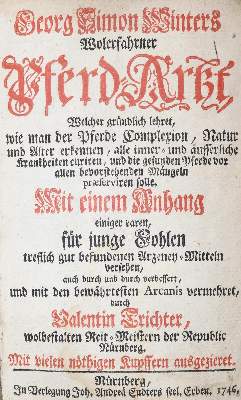 Georg Simon Winters
Wolerfahrner
Pferd-Artzt,
Welcher gründlich lehret,
wie man der Pferde Complexion, Natur
und Alter erkennen, alle inner- und äusserliche
Kranckheiten curiren, und die gesunden Pferde vor
allen bevorstehenden Mängeln
præserviren solle.
Mit einem Anhang
einiger raren,
für junge Fohlen
treflich gut befundenen Artzeney-Mitteln
versehen,
auch durch und durch verbessert,
und mit den bewährtesten Arcanis vermehret,
durch
Valentin Trichter,
wolbestalten Reit-Meistern der Republic
Nürnberg.
Mit vielen nöthigen Kupffern ausgezieret.
Nürnberg,
In Verlegung Joh. Andreä Endters seel. Erben. 1746.